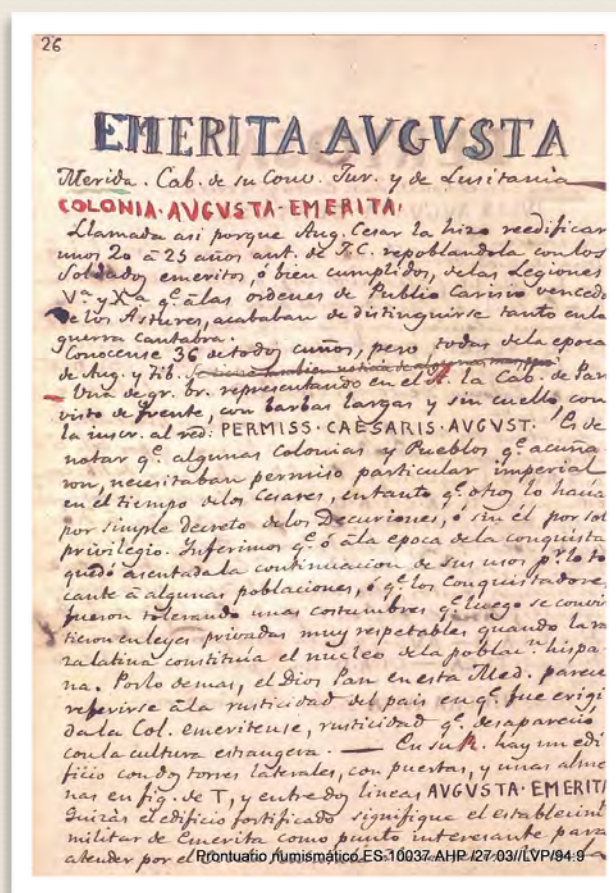 26
EMERITA AVGVSTA
Merida. Cab. de su Conv. Jur. y de Lusitania
COLONIA·AVGVSTA·EMERITA·
Llamada asi porque Aug. Cesar la hizo reedificar
unos 20 á 25 años ant. de J.C. repoblandola con los
soldados emeritos, ó bien cumplidos, delas Legiones
Vª y Xª q.e álas ordenes de Publio Carisio vencedo
de los Astures, acababan de distinguirse tanto enla
guerra cantabra.
Conocense 36 de todos cuños, pero todas dela epoca
de Aug. y Tib.
— Una de gr. br. representando en el A. la Cab. de Pan
visto de frente, con barbas largas y sin cuello con
la inscr. al red: PERMISS·CAESARIS·AVGVST. Es de
notar q.e algunas Colonias y Pueblos q.e acuña-
ron, necesitaban permiso particular imperial
en el tiempo delos Cesares, entanto q.e otros lo hacia
por simple decreto delos Decuriones, ó sin él por sol
privilegio. Inferimos q.e ó ála epoca dela conquista
quedó asentada la continuacion de sus usos p.r lo to
cante á algunas poblaciones, ó q.e los Conquistadore,
fueron tolerando unas costumbres q.e luego se convir
tieron en leyes privadas muy respetables quando la ra
za latina constituia el nucleo dela poblac.n hispa-
na. Porlo demas, el Dios Pan en esta Med. parece
referirse ála rusticidad del pais en q.e fue erigi
da la Col. emeritense, rusticidad q.e desapareció
conla cultura estrangera. — En su R. hay un edi
ficio con dos torres laterales, con puertas, y unas alme
nas en fig. de T, y entre dos lineas AVGVSTA·EMERITA
Quizás el edificio fortificado signifique el establecimi
militar de Emerita como punto interesante para
atender por el
Prontuario numismático ES.10037.AHP /27.03//LVP/94.9